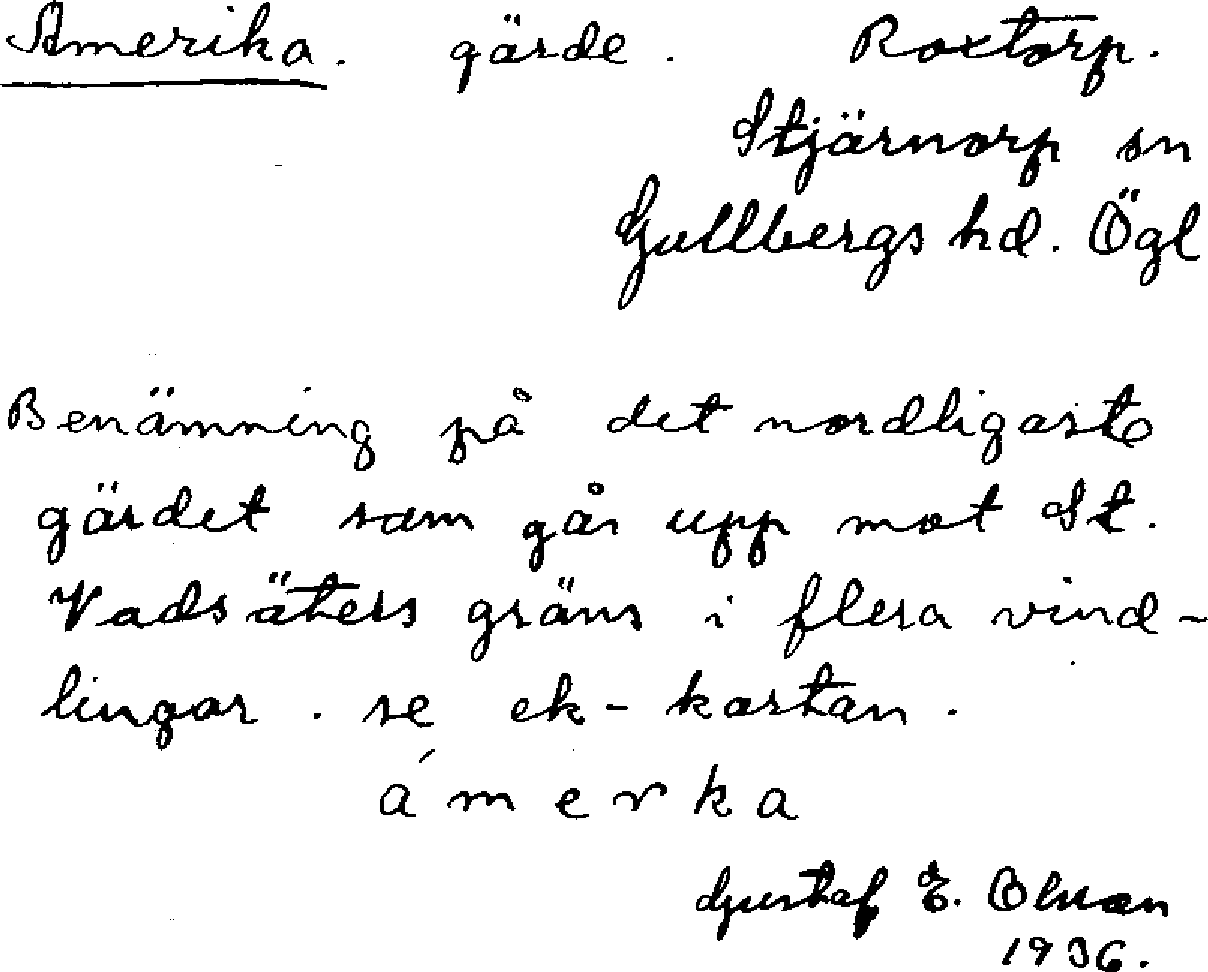 Amerika. gärde. Roxtorp.
Stjärnorp sn
Gullbergs hd. Ögl
Benämning på det nordligaste
gärdet som går upp mot St.
Vadsäters gräns i flera vind-
lingar. se ek-kartan.
ámerka
Gustaf E. Olsson
1936.